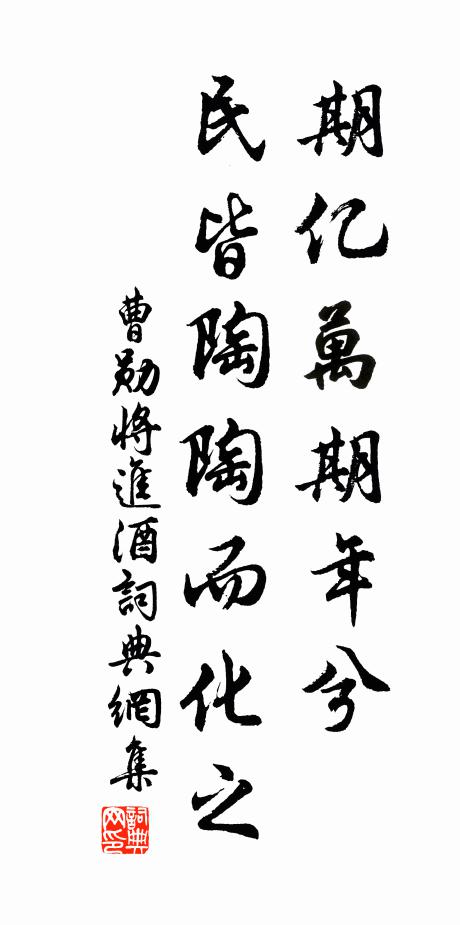 期亿萬期年兮
民皆陶陶而化之
曹勛將進酒詞典網集
詞典网印